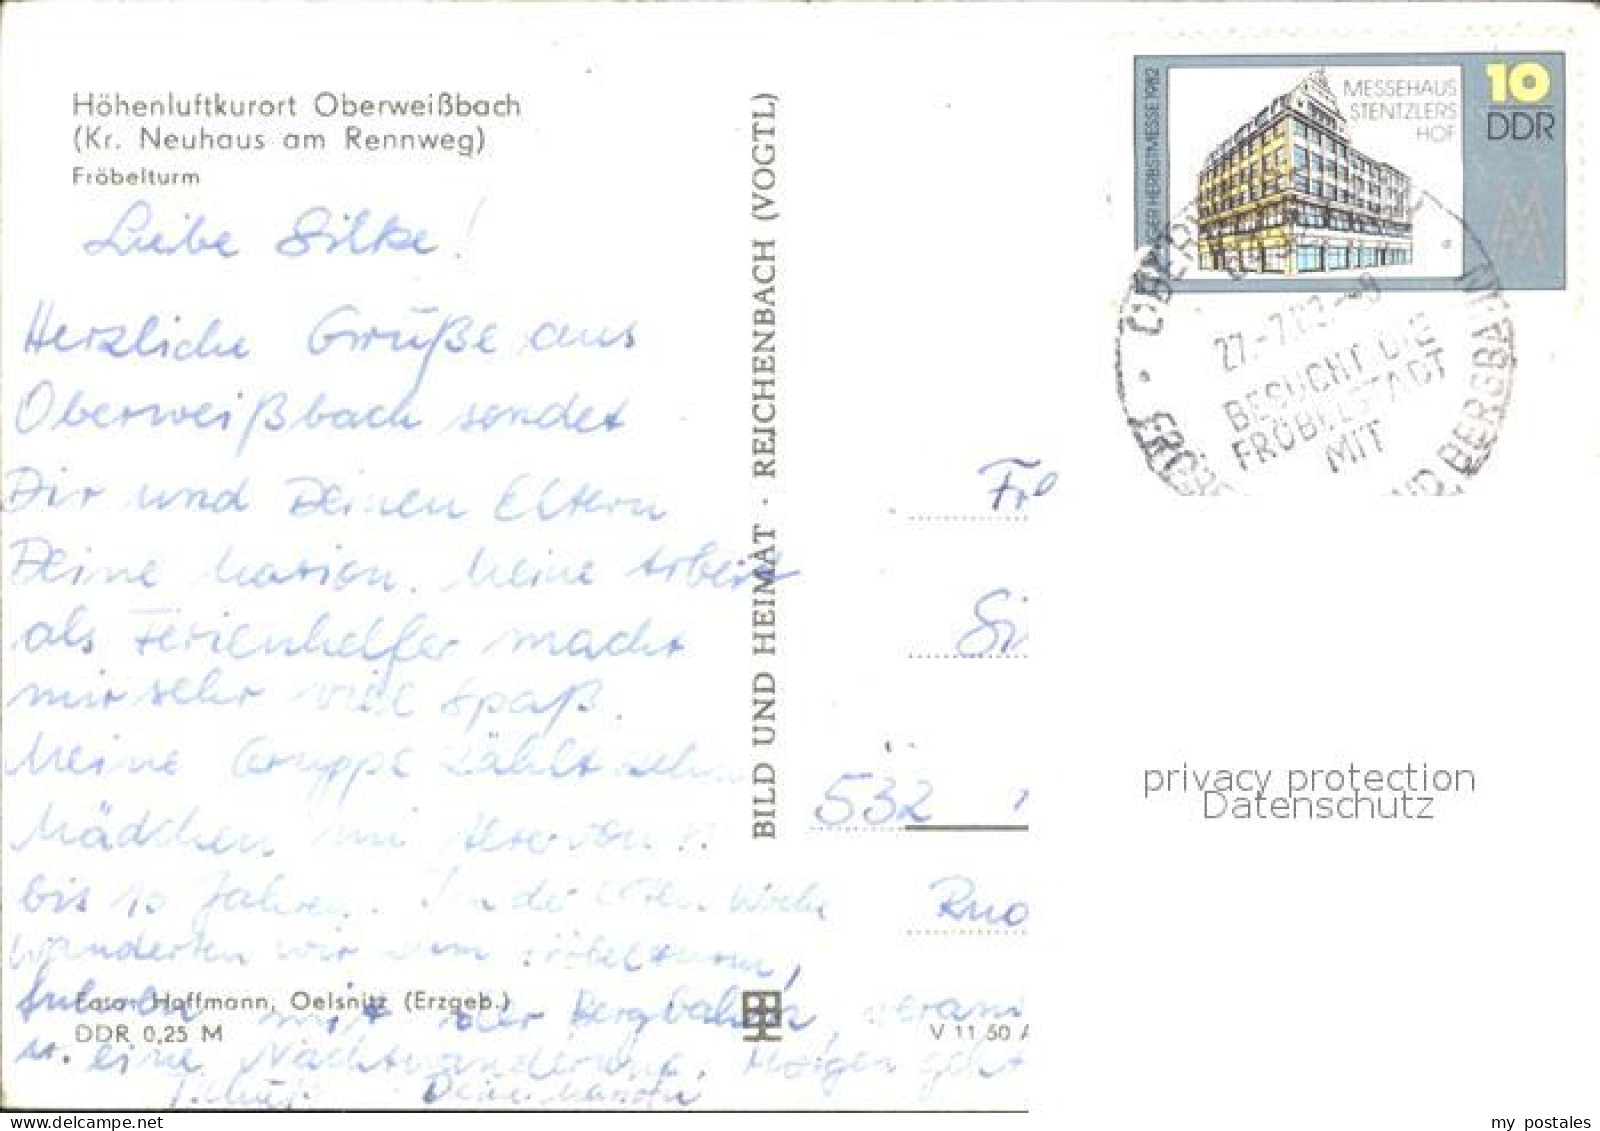 Höhenluftkurort Oberweißbach
(Kr. Neuhaus am Rennweg)
Fröbelturm
Liebe Silke!
Herzliche Grüße aus
Oberweißbach sendet
Dir und Deinen Eltern
Deine Marion. Meine Arbeit
als Ferienhelfer macht
mir sehr viel Spaß.
Meine Gruppe zählt zehn
Mädchen im Alter von
bis 10 Jahren. In der Woche
wanderten wir zum Fröbelturm,
fuhren mit der Bergbahn,
u. eine Nachtwanderung. Morgen geht
Deine Marion
Foto: Hoffmann, Oelsnitz (Erzgeb.)
DDR 0,25 M
BILD UND HEIMAT · REICHENBACH (VOGTL)
V 11 50 A
MESSEHAUS
STENTZLERS
HOF
10
DDR
GER HERBSTMESSE 1982
27.-7.
BESUCHT DIE
FRÖBELSTADT
MIT
BERGBA
Si
532
Rud
privacy protection
Datenschutz
www.delcampe.net
my_postales